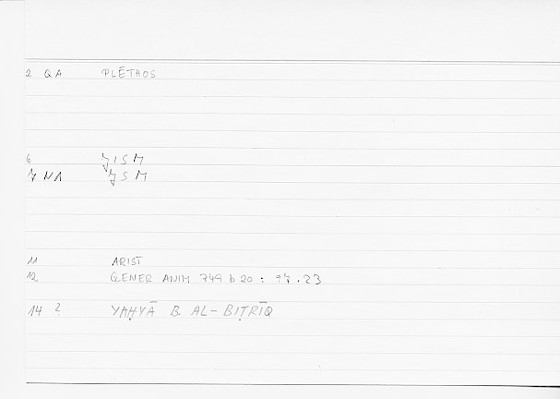 2 QA PLĒTHOS
6 ǦISM
7 NA ǦSM
11 ARIST
12 GENER ANIM 749 b 20 : 97.23
14 2 YAḤYĀ B. AL-BIṬRĪQ